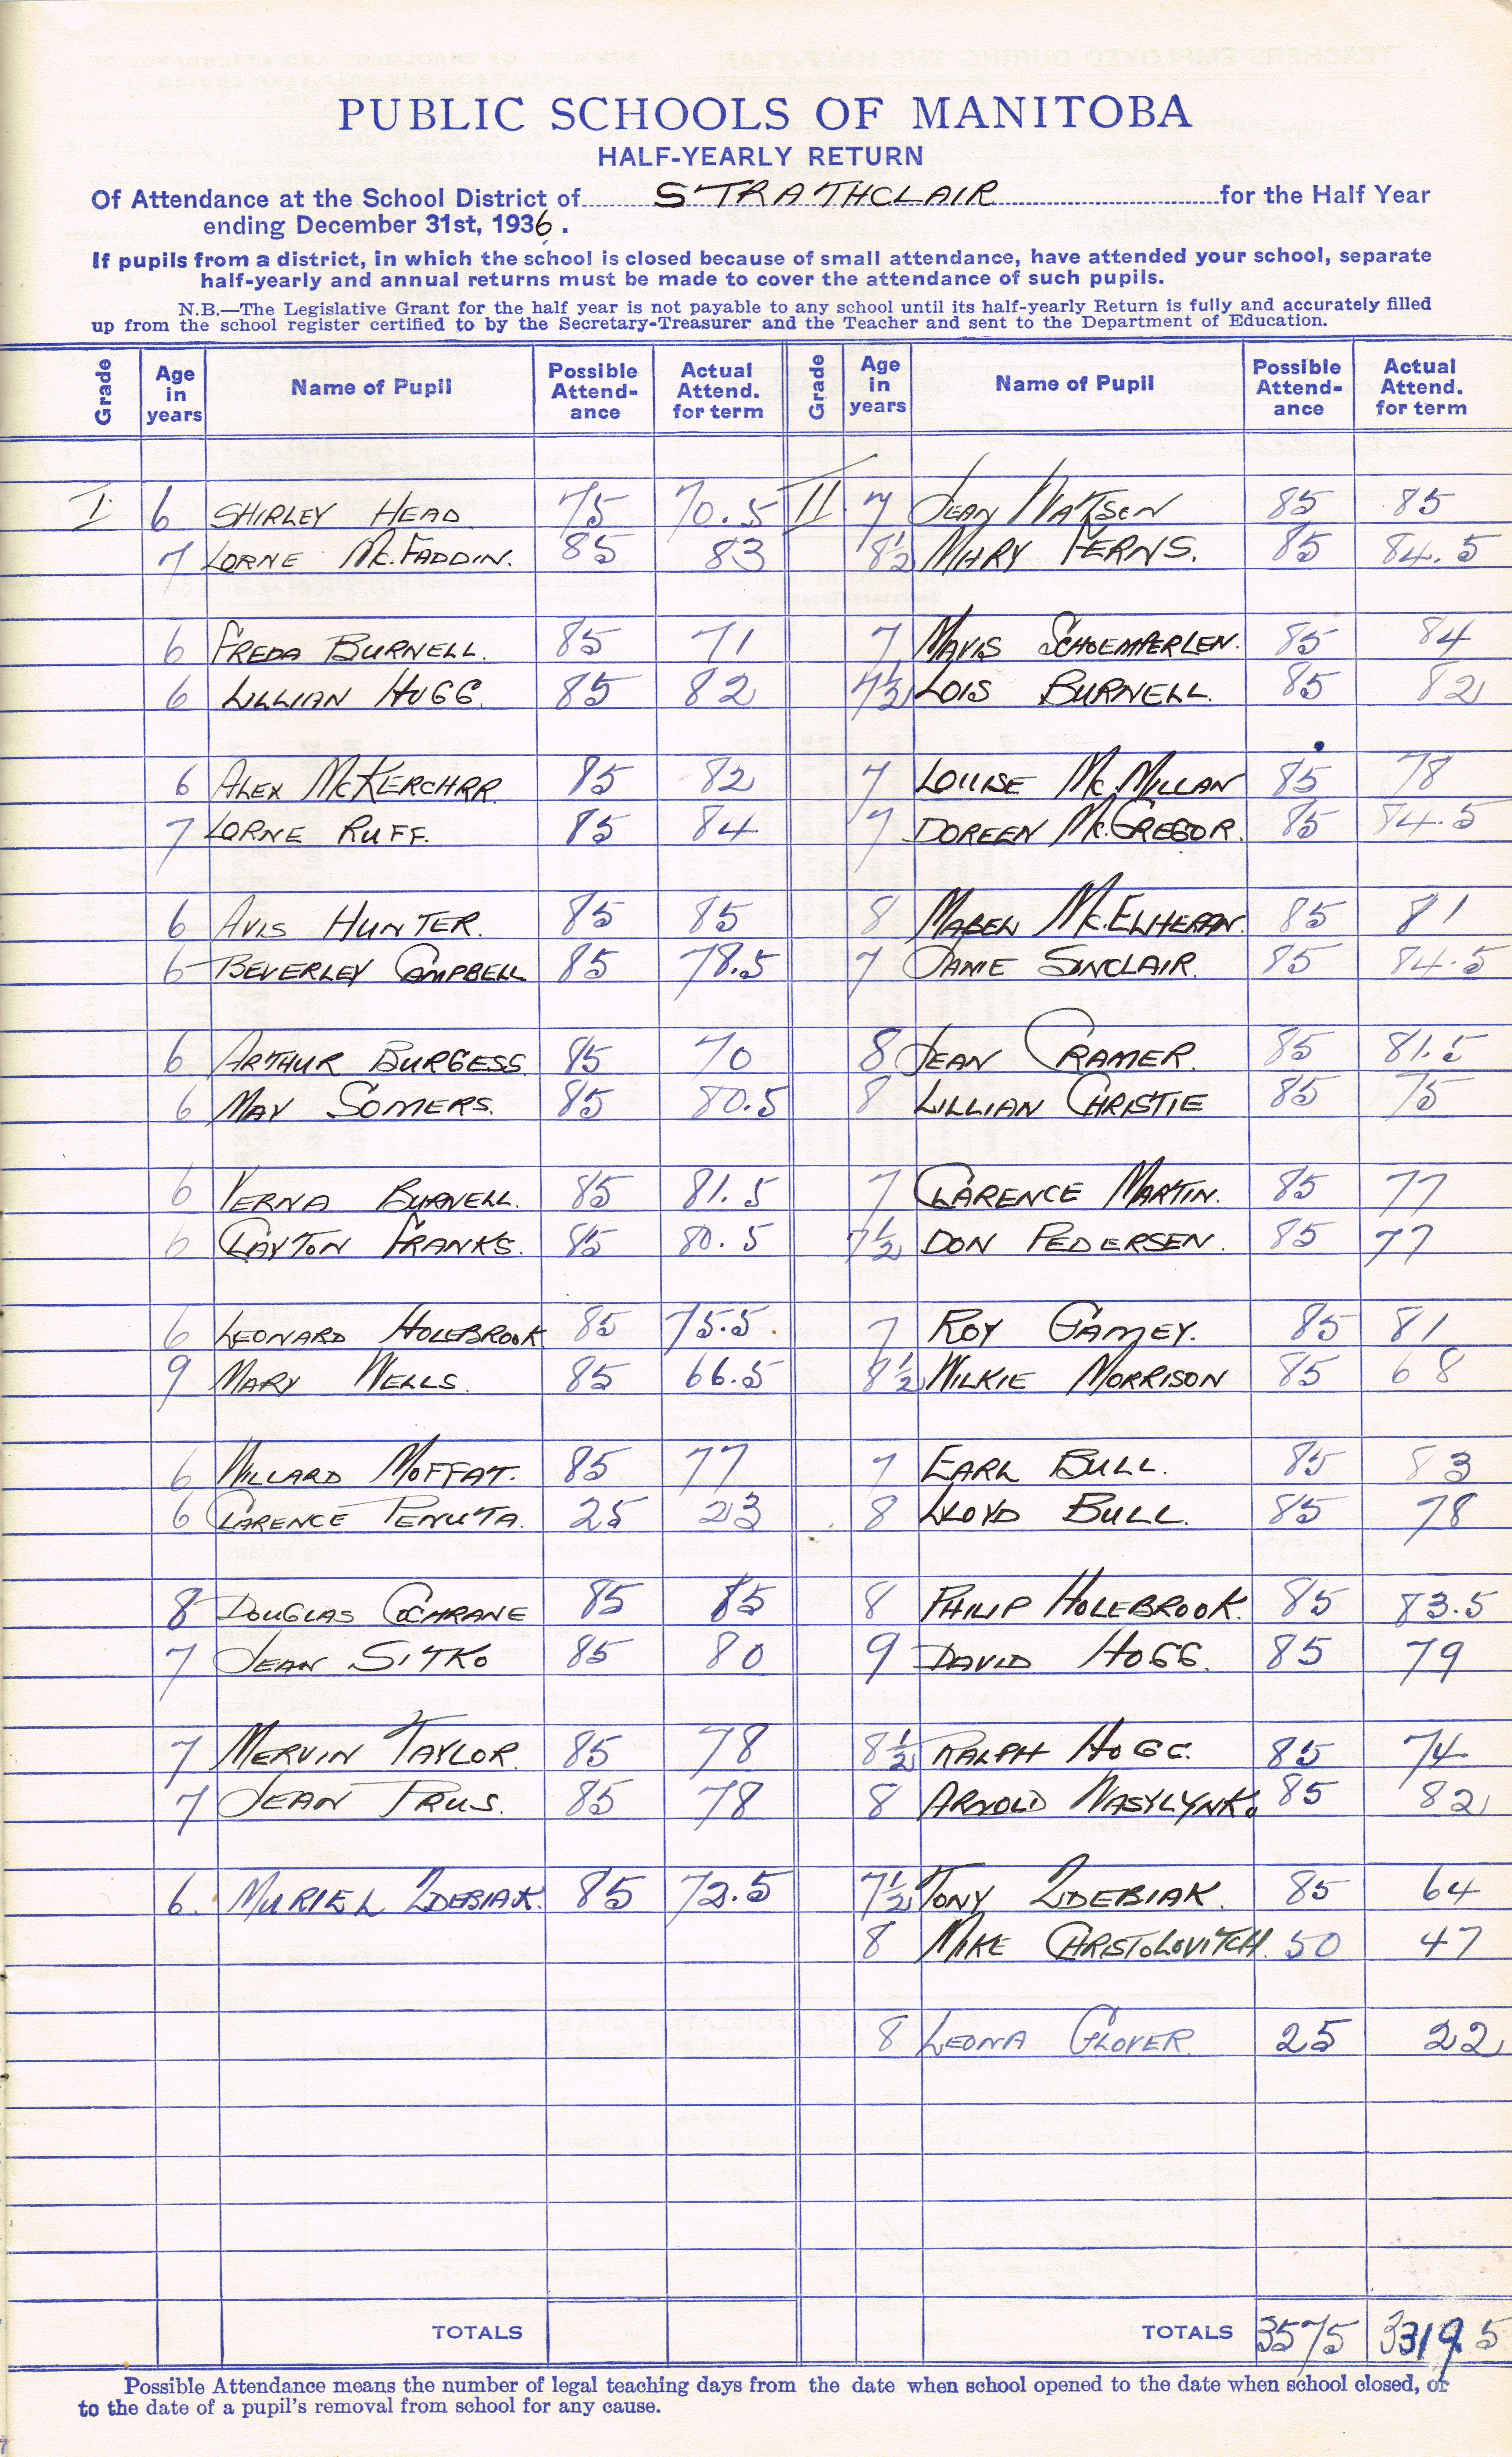 PUBLIC SCHOOLS OF MANITOBA
HALF-YEARLY RETURN
Of Attendance at the School District of STRATHCLAIR for the Half Year
ending December 31st, 1936.
If pupils from a district, in which the school is closed because of small attendance, have attended your school, separate
half-yearly and annual returns must be made to cover the attendance of such pupils.
N.B.—The Legislative Grant for the half year is not payable to any school until its half-yearly Return is fully and accurately filled
up from the school register certified to by the Secretary-Treasurer and the Teacher and sent to the Department of Education.
Grade Age in years Name of Pupil Possible Attend-ance Actual Attend. for term Grade Age in years Name of Pupil Possible Attend-ance Actual Attend. for term
I 6 SHIRLEY HEAD 75 70.5 II 7 JEAN WATSON 85 85
7 LORNE Mc.FADDIN. 85 83 8½ MARY FERNS. 85 84.5
6 FREDA BURNELL. 85 71 7 MAVIS SCHOEMPERLEN. 85 84
6 LILLIAN HOGG. 85 82 7½ LOIS BURNELL. 85 82
6 ALEX McKERCHAR. 85 82 7 LOUISE Mc.MILLAN 85 78
7 LORNE RUFF. 85 84 7 DOREEN Mc.GREGOR. 85 84.5
6 AVIS HUNTER. 85 85 8 MABEL Mc.ELHERAN. 85 81
6 BEVERLEY CAMPBELL 85 78.5 7 JAMIE SINCLAIR. 85 84.5
6 ARTHUR BURGESS. 85 70 8 JEAN CRAMER. 85 81.5
6 MAY SOMERS. 85 80.5 8 LILLIAN CHRISTIE 85 75
6 VERNA BURNELL. 85 81.5 7 CLARENCE MARTIN. 85 77
6 CLAYTON FRANKS. 85 80.5 7½ DON PEDERSEN. 85 77
6 LEONARD HOLEBROOK 85 75.5 7 ROY GAMEY. 85 81
9 MARY WELLS. 85 66.5 8½ WILKIE MORRISON 85 68
6 WILLARD MOFFAT. 85 77 7 EARL BULL. 85 83
6 CLARENCE PENUTA. 25 23 8 LLOYD BULL. 85 78
8 DOUGLAS COCHRANE 85 85 8 PHILIP HOLEBROOK. 85 83.5
7 JEAN SITKO 85 80 9 DAVID HOGG. 85 79
7 MERVIN TAYLOR. 85 78 8½ RALPH HOGG. 85 74
7 JEAN PRUS. 85 78 8 ARNOLD WASYLYNKO 85 82
6. MURIEL ZDEBIAK. 85 72.5 7½ TONY ZDEBIAK. 85 64
8 MIKE CHRISTOLOVITCH. 50 47
8 LEONA GLOVER. 25 22
TOTALS TOTALS 3575 3319.5
Possible Attendance means the number of legal teaching days from the date when school opened to the date when school closed, or
to the date of a pupil's removal from school for any cause.